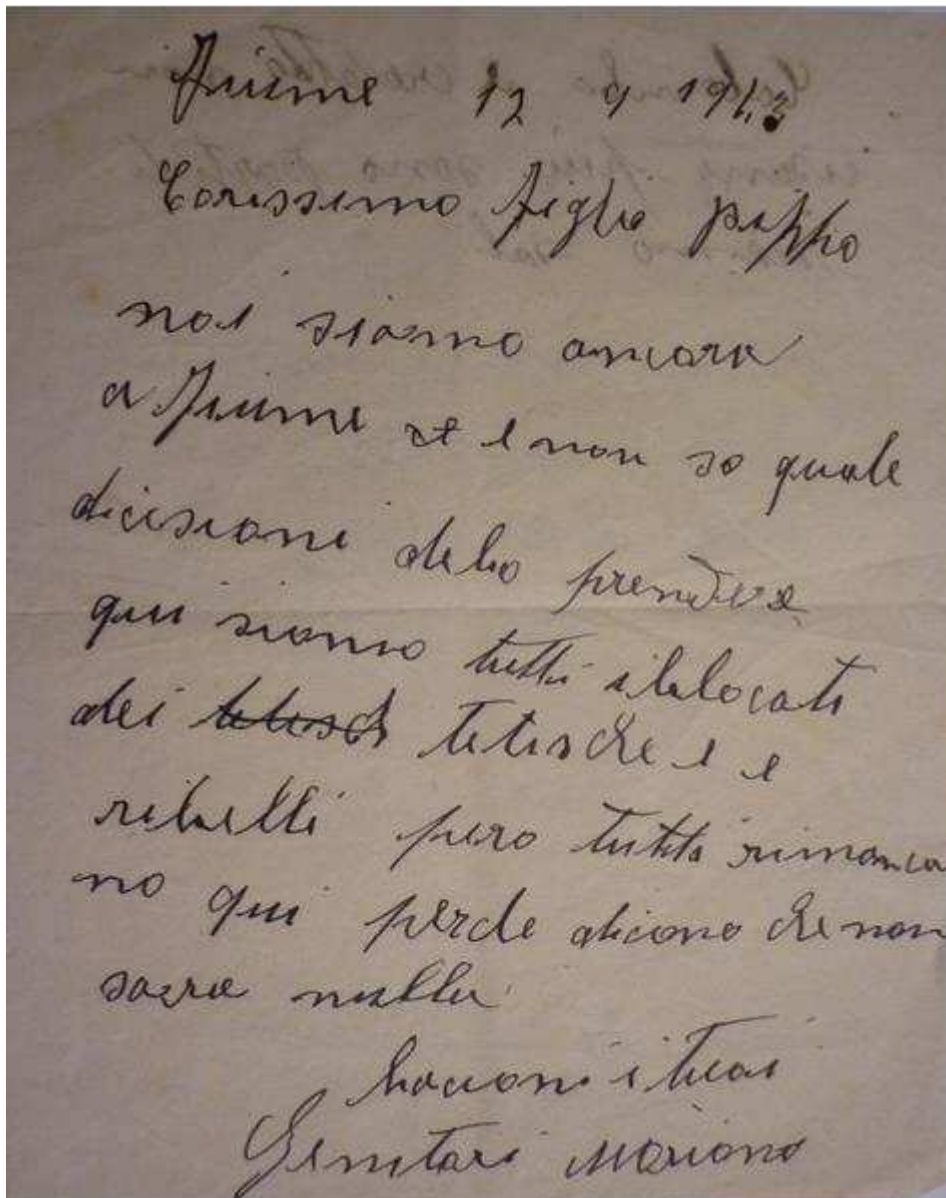 Fiume 12 9 1943
Carissimo figlio Pippo
noi siamo ancora
a Fiume et e non so quale
dicisione debo prendere
qui siamo tutti iblocati
dei tetesch tetesche e e
ribelli pero tutti rimanca
no qui perche dicono che non
sarra nulla
baccioni i tuoi
Genitori Mariano